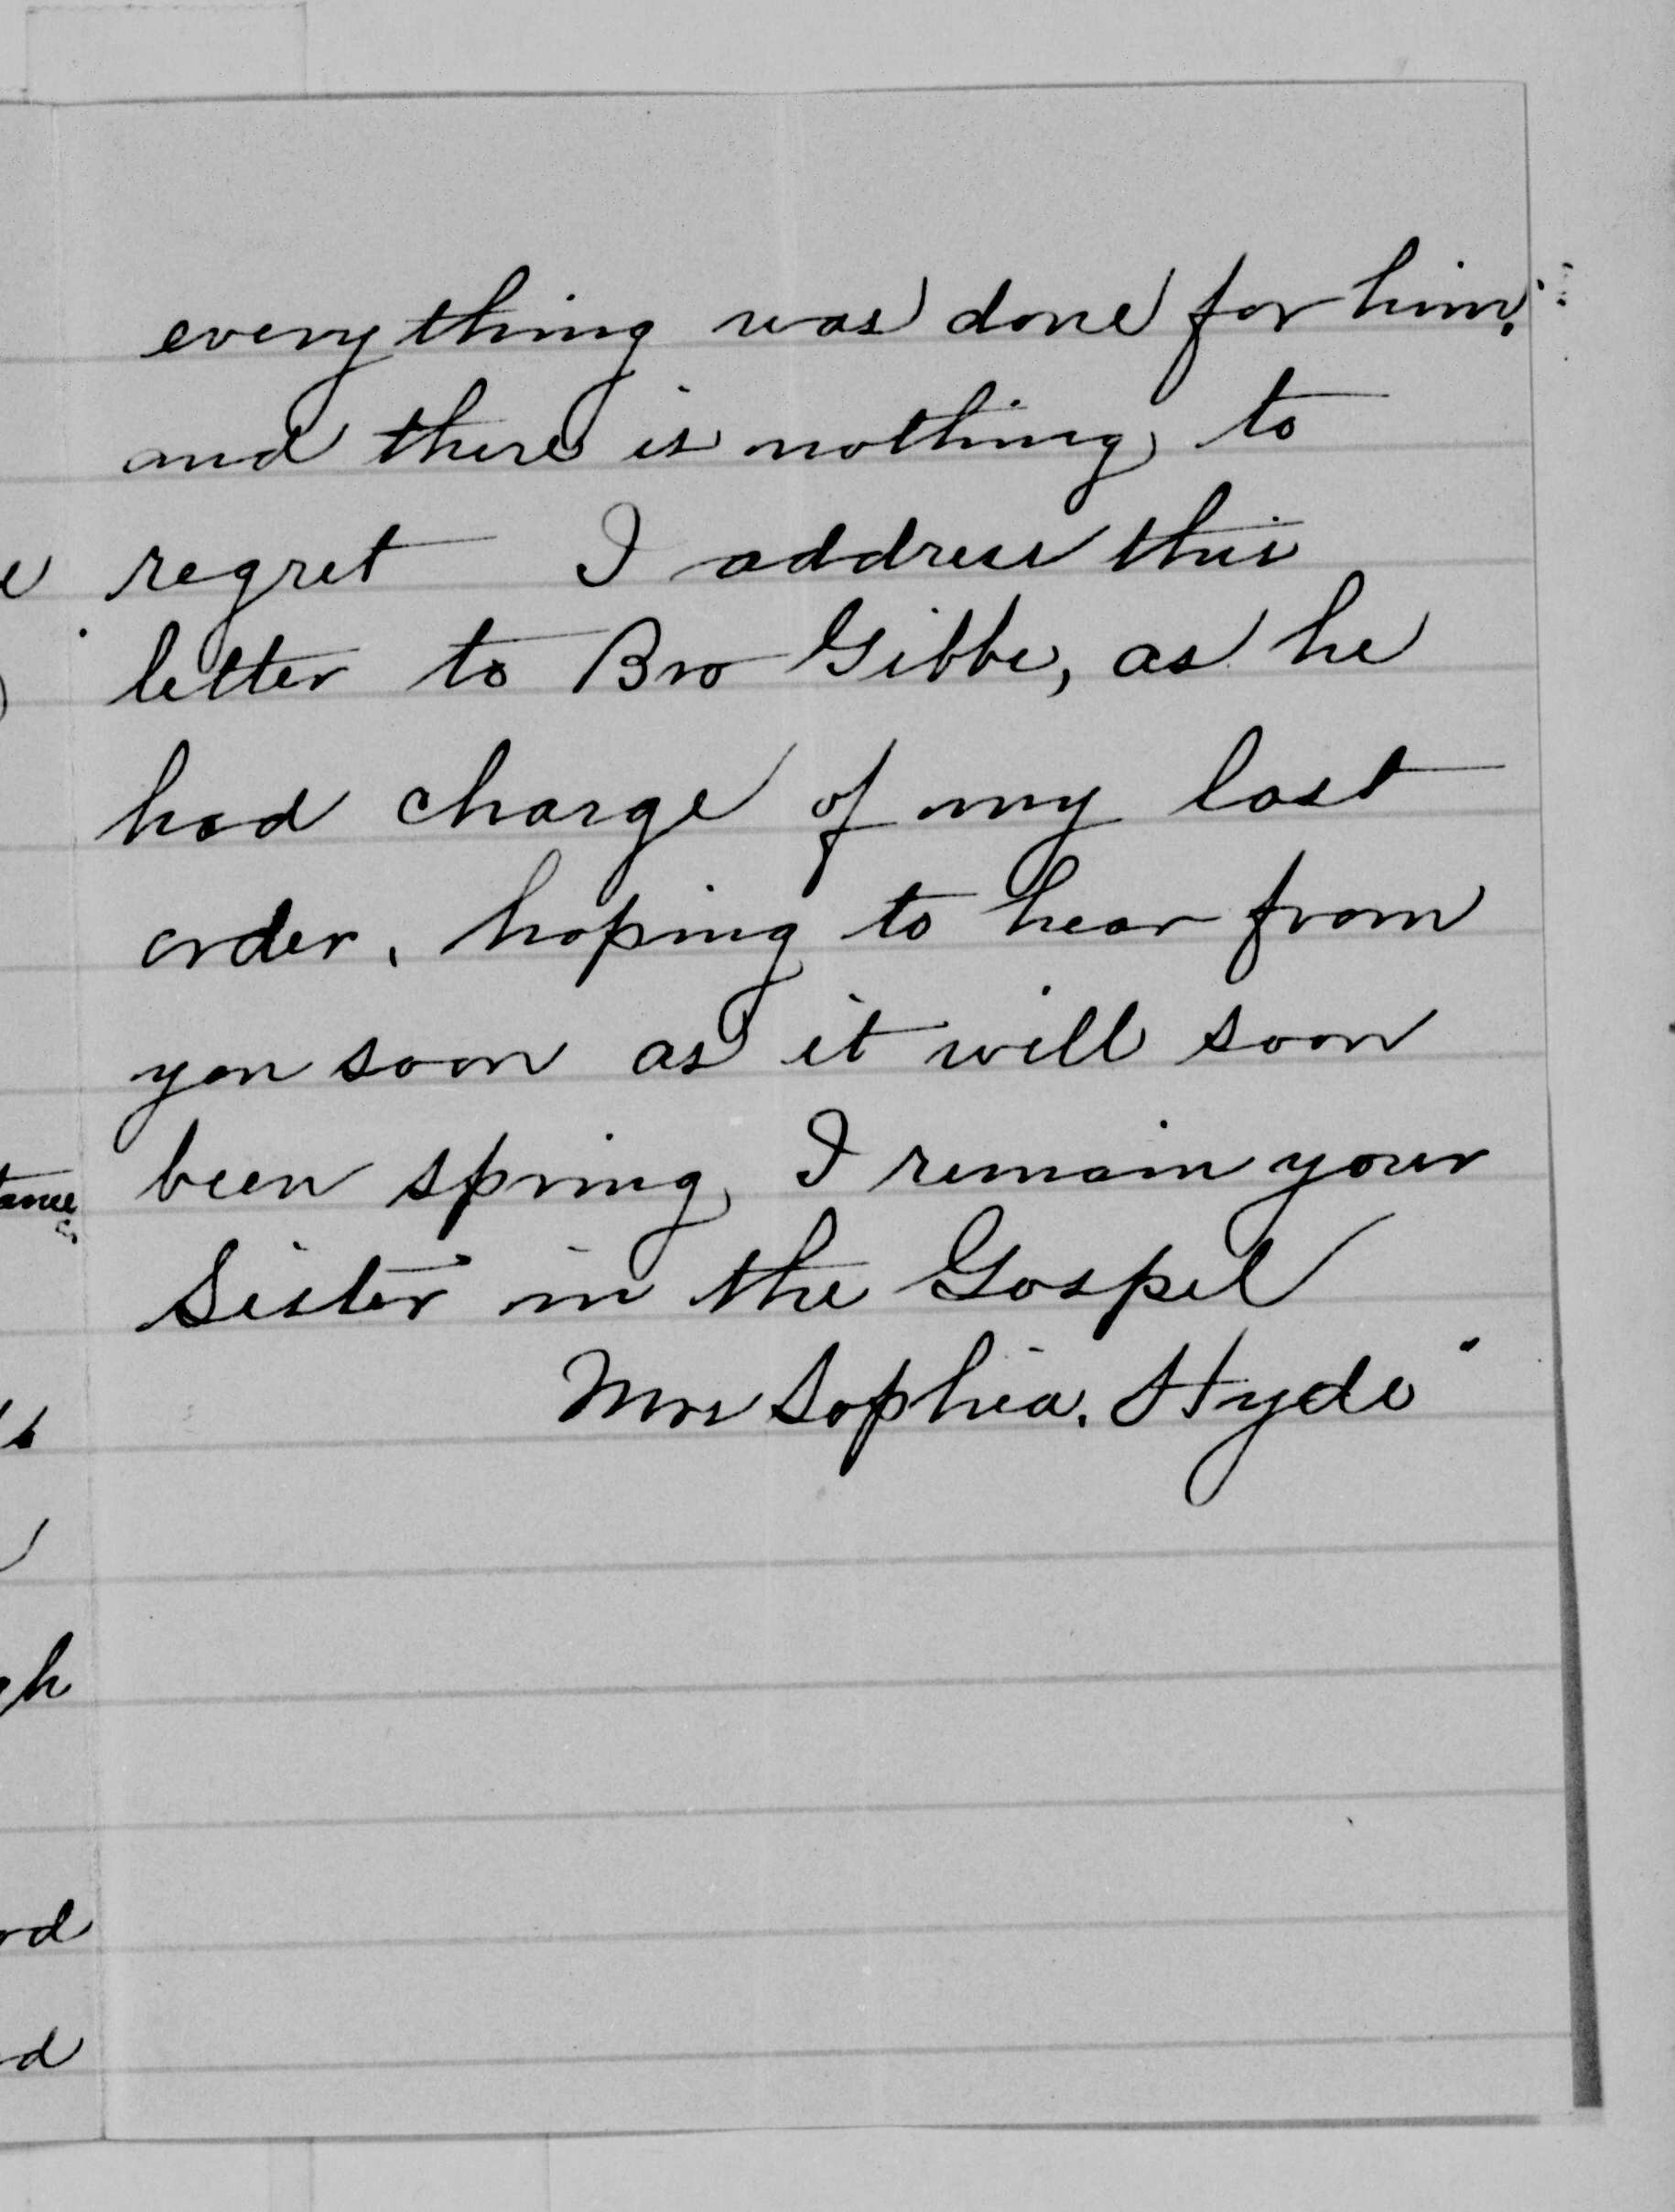 everything was done for him.
and there is nothing to
regret I address this
letter to Bro Gibbs, as he
had charge of my last
order. hoping to hear from
you soon as it will soon
been spring I remain your
Sister in the Gospel
Mrs Sophia. Hyde